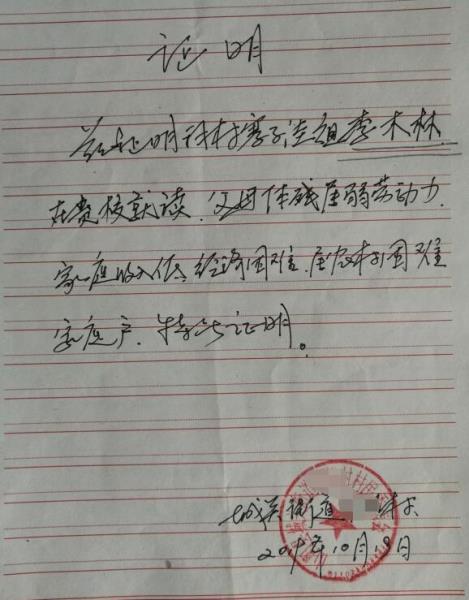 证明
兹证明我村寨子洼组李木林
在贵校就读，父母体残属弱劳动力，
家庭收入低，经济困难，属农村困难
家庭户，特此证明。
城关街道
10月19日